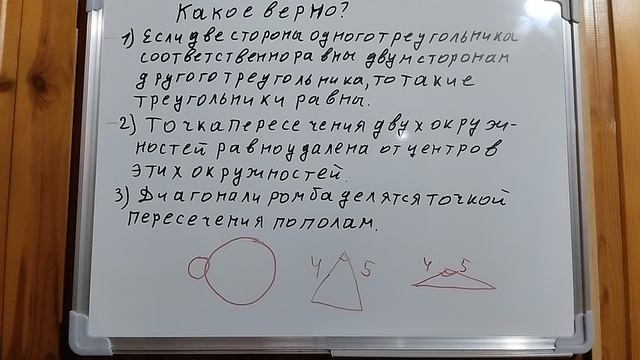 Какое верно?
1) Если две стороны одного треугольника
соответственно равны двум сторонам
другого треугольника, то такие
треугольники равны.
2) Точка пересечения двух окруж-
ностей равноудалена от центров
этих окружностей.
3) Диагонали ромба делятся точкой
пересечения пополам.
4 5 4 5